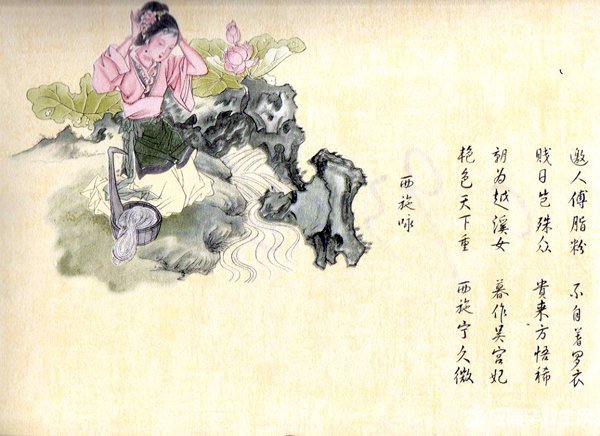 西施咏
艳色天下重 西施宁久微
朝为越溪女 暮作吴宫妃
贱日岂殊众 贵来方悟稀
邀人傅脂粉 不自着罗衣